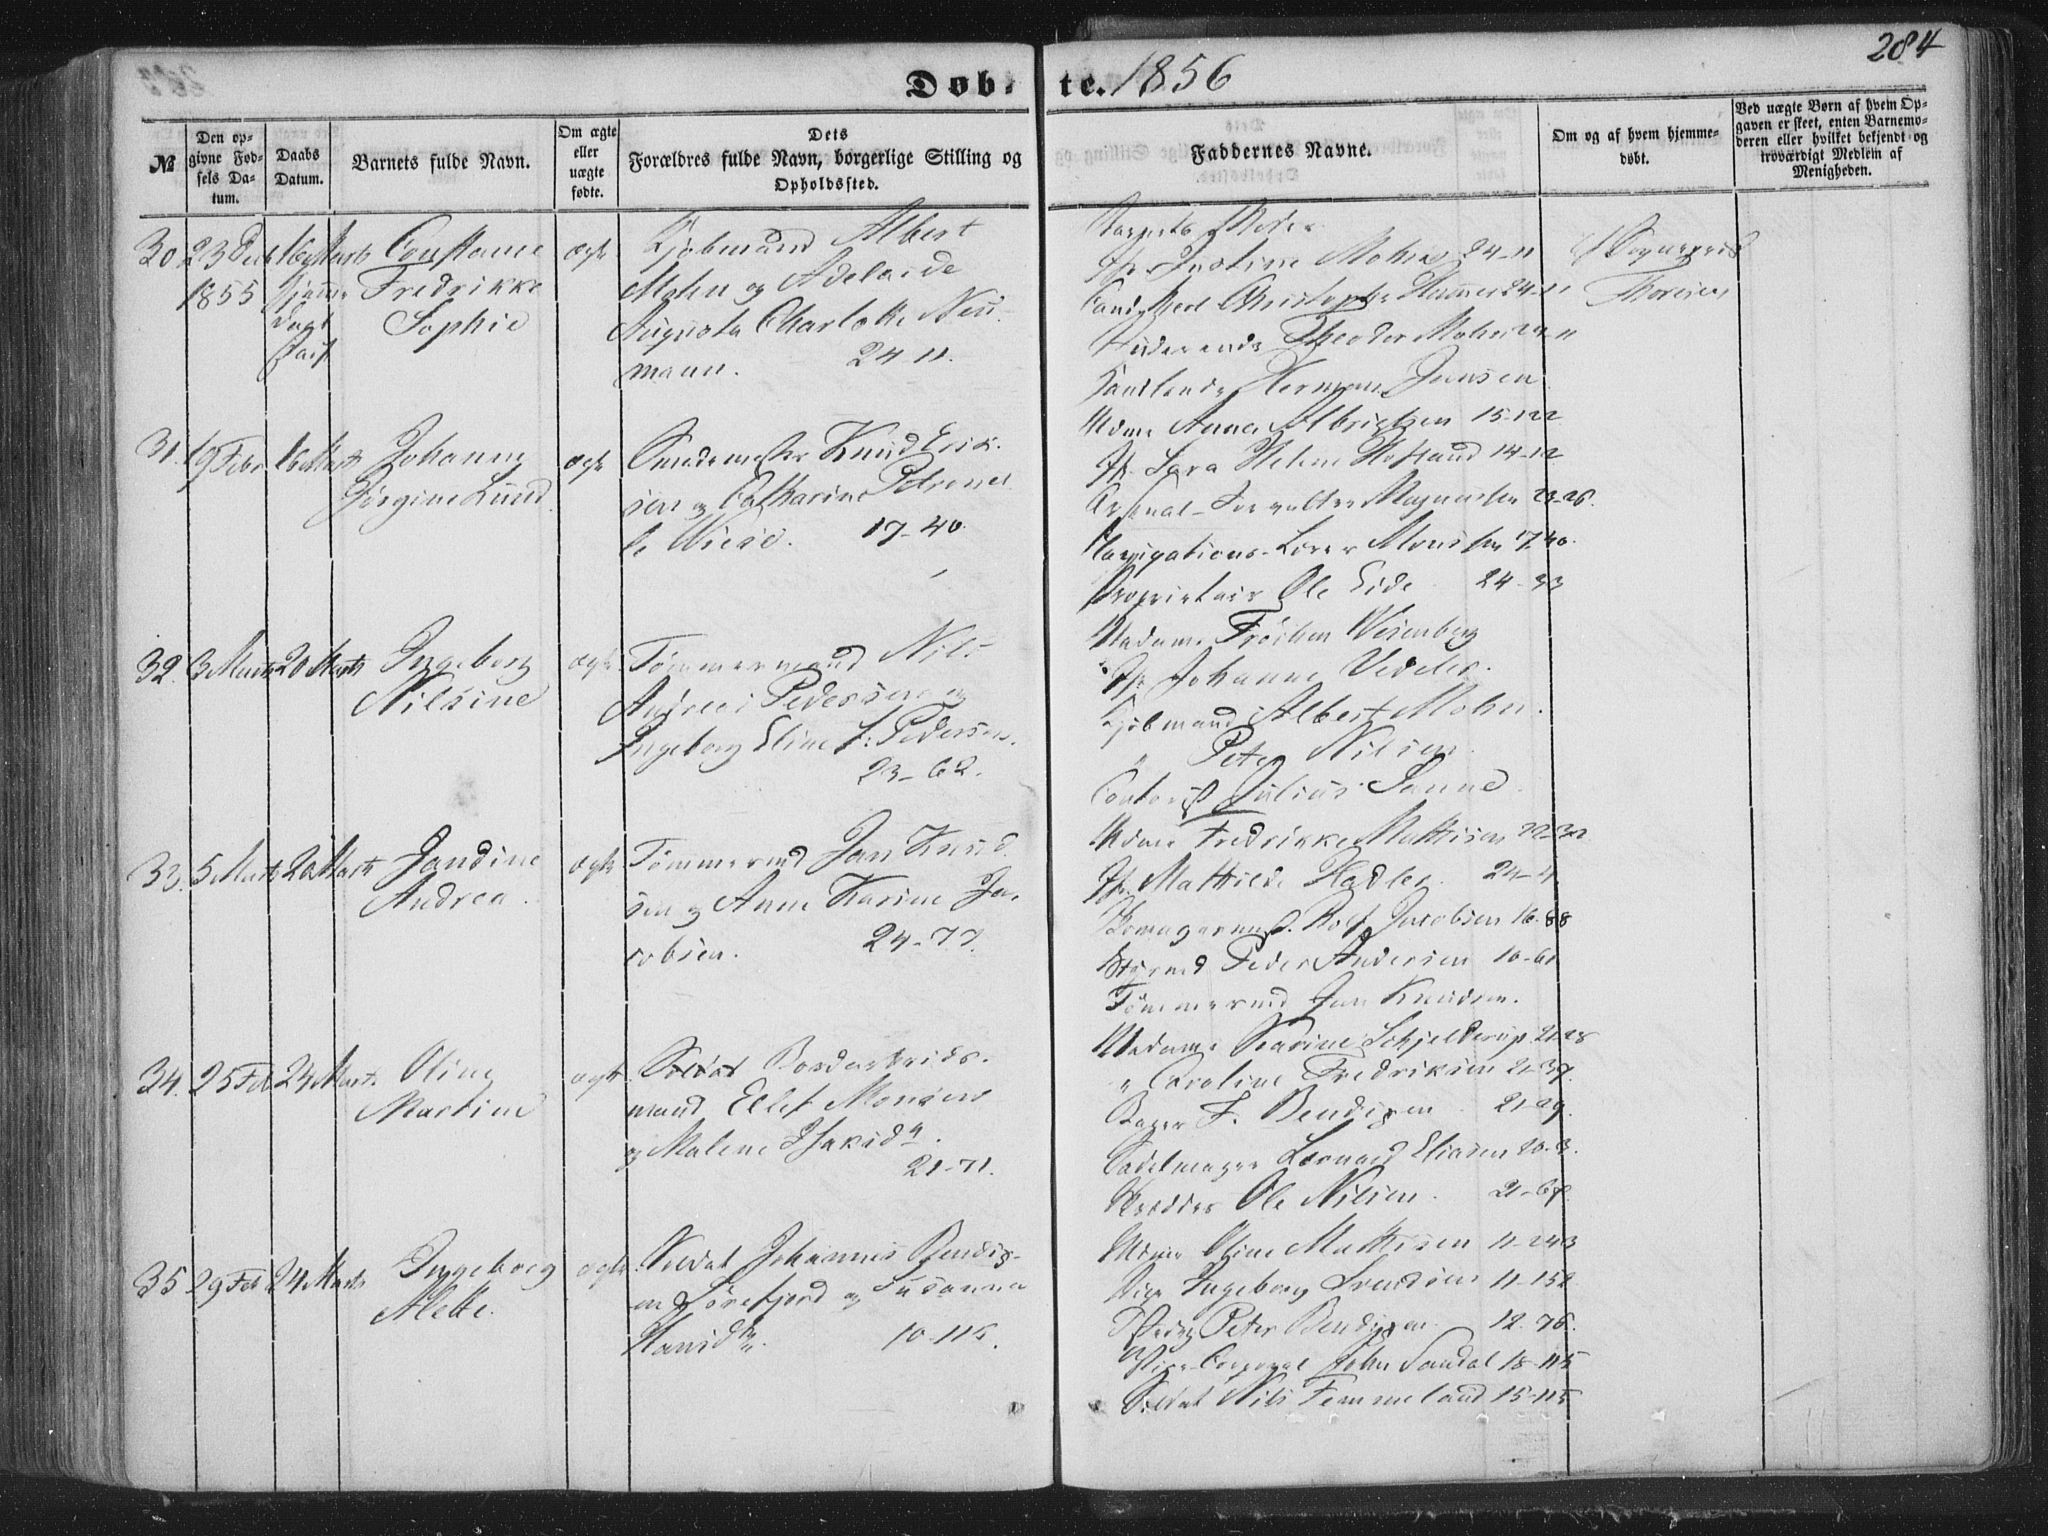 284
Døbte. 1856
№
Den opgivne Fødsels Datum.
Daabs Datum.
Barnets fulde Navn.
Om ægte eller uægte fødte.
Dets Forældres fulde Navn, borgerlige Stilling og Opholdssted.
Faddernes Navne.
Om og af hvem hjemmedøbt.
Ved uægte Børn af hvem Opgaven er skeet, enten Barnemoderen eller hvilket bekjendt og troværdigt Medlem af Menigheden.
30. 23 Decb 1855
16 Marts
Constance
Fredrikke
Sophie
ægte
Kjøbmand Albert
Mohn og Adelaide
Augusta Charlotte Neu
mann. 24-11.
Barnets Moder
Jfr Justine Mohn 24-11
Christopher Hammer 24-11
Theodor Mohn 24-11
Herman Jensen
Sognepræst
Thoresen
31. 19 Febr 16 Marts
Johanne
Jørgine Lund
ægte
Knud Erik
sen og Catharine Petronel
le Wiese. 17-40.
Mdme Anna Albrigtsen 15-122
Jfr. Sara Helene 14-12
Arsenal-Forvalter Magnussen 23-26.
Navigations-Lærer Monssen 17-40.
Proprietair Ole Eide 24-33
32. 3 Marts 20 Marts
Ingeborg
Nilsine
ægte
Tømmermand Nils
Andreas Pedersen og
Ingeborg Eline f: Pedersen.
23-62.
Madame Trösken Wesenberg
Jfr Johanne Vedeler.
Kjøbmand Albert Mohn.
" Peter Nilsen
Contorist Julius Sanne.
33. 5 Marts 20 Marts
Jandine
Andrea.
ægte
Tømmermd Jan Knud
sen og Anne Karine Ja
cobsen. 24-77.
Mdme Fredrikke Mathisen 22-32
Jfr. Mathilde Hadler. 24-4
Rolf Jacobsen 16-88
Styrmd Peder Andersen 10-61
Tømmermd Jan Knudsen.
34. 25 Feb 24 Marts
Oline
Martine
ægte
Soldat Bordarbeids
mand Ellef Monsen
og Malene Isaksd.
21-71.
Madame Karine Schjelderup 21-28
" Caroline Fredriksen 21-37.
Bager F. Bendixen 21-29.
Sadelmager Leonard Eliasen 20-3.
Skrædder Ole Nilsen. 21-67.
35. 29 Feb 24 Marts
Ingeborg
Alette.
ægte
Soldat Johannes Bendix
en Sørefjord og Susanna
Hansdtr. 10-115.
Mdme Oline Mathisen 11-243
Pige Ingeborg Svendsen 11-152
Peter Bendixen 12-76.
Vice-Corporal John Sandal 18-115
Soldat Nils Femmeland 15-115